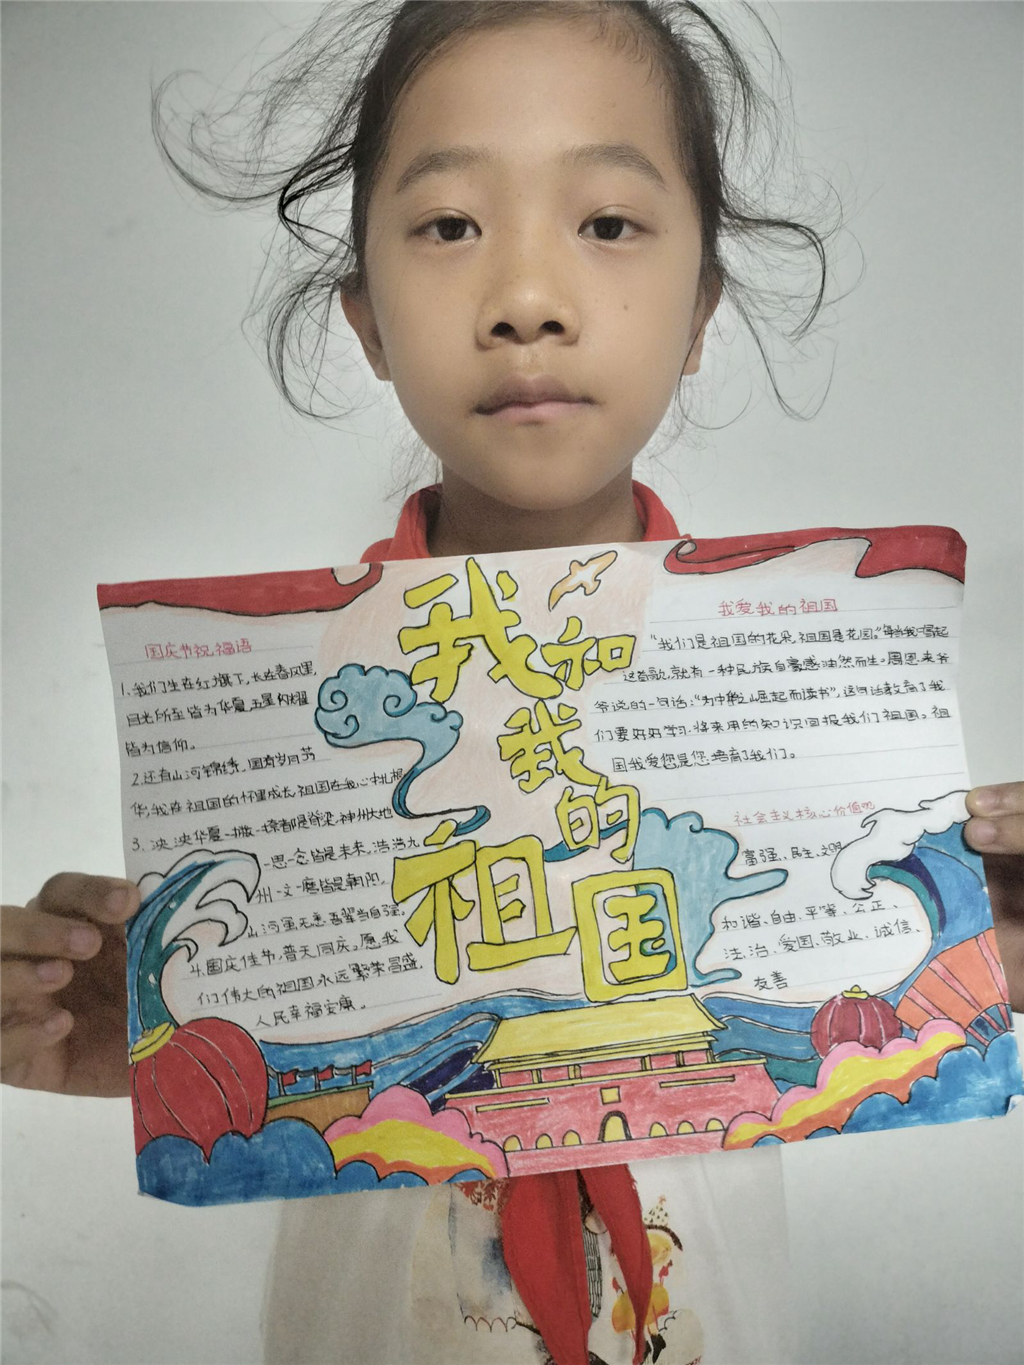 我和
我的
祖国
国庆节祝福语
1、我们生在红旗下,长在春风里,
目光所至皆为华夏,五星闪耀
皆为信仰。
2.还有山河锦绣,国有岁月芳
华,我在祖国的怀里成长,祖国在我心中扎根
3、泱泱华夏一撇一捺都是脊梁,神州大地
一思一念皆是未来,浩浩九
州一文一墨皆是朝阳。
山河虽无恙吾辈当自强,
4.国庆佳节,普天同庆,愿我
们伟大的祖国永远繁荣昌盛,
人民幸福安康。
我爱我的祖国
"我们是祖国的花朵,祖国是花园。"每当我唱起
这首歌,就有一种民族自豪感油然而生。周恩来爷
爷说的一句话:"为中华之崛起而读书",这句话教育了我
们要好好学习,将来用的知识回报我们祖国。祖
国我爱您是您培育了我们。
社会主义核心价值观
富强、民主、文明
和谐、自由、平等、公正、
法治、爱国、敬业、诚信、
友善